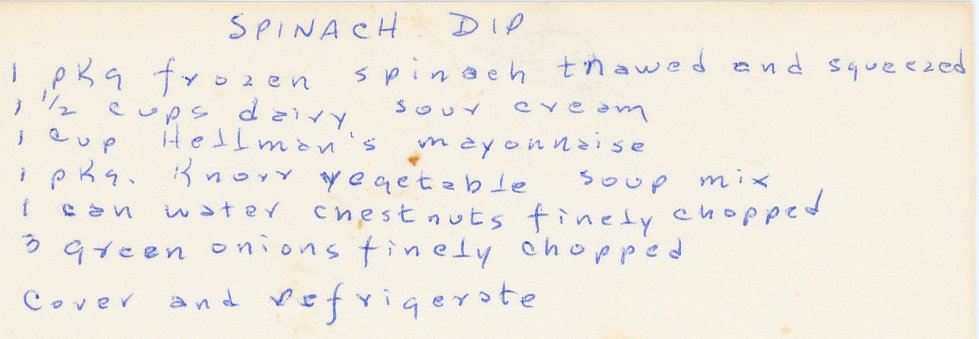 SPINACH DIP
1 pkg frozen spinach thawed and squeezed
1 1/2 cups dairy sour cream
1 cup Hellman's mayonnaise
1 pkg. Knorr vegetable soup mix
1 can water chestnuts finely chopped
3 green onions finely chopped
Cover and refrigerate